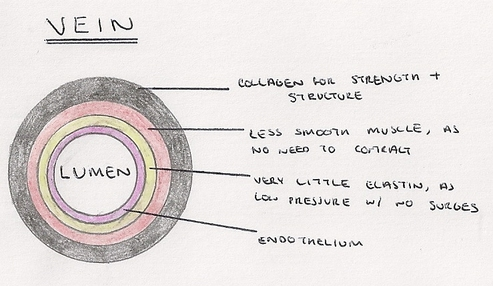 VEIN
COLLAGEN FOR STRENGTH +
STRUCTURE
LESS SMOOTH MUSCLE, AS
NO NEED TO CONTRACT
LUMEN
VERY LITTLE ELASTIN, AS
LOW PRESSURE W/ NO SURGES
ENDOTHELIUM